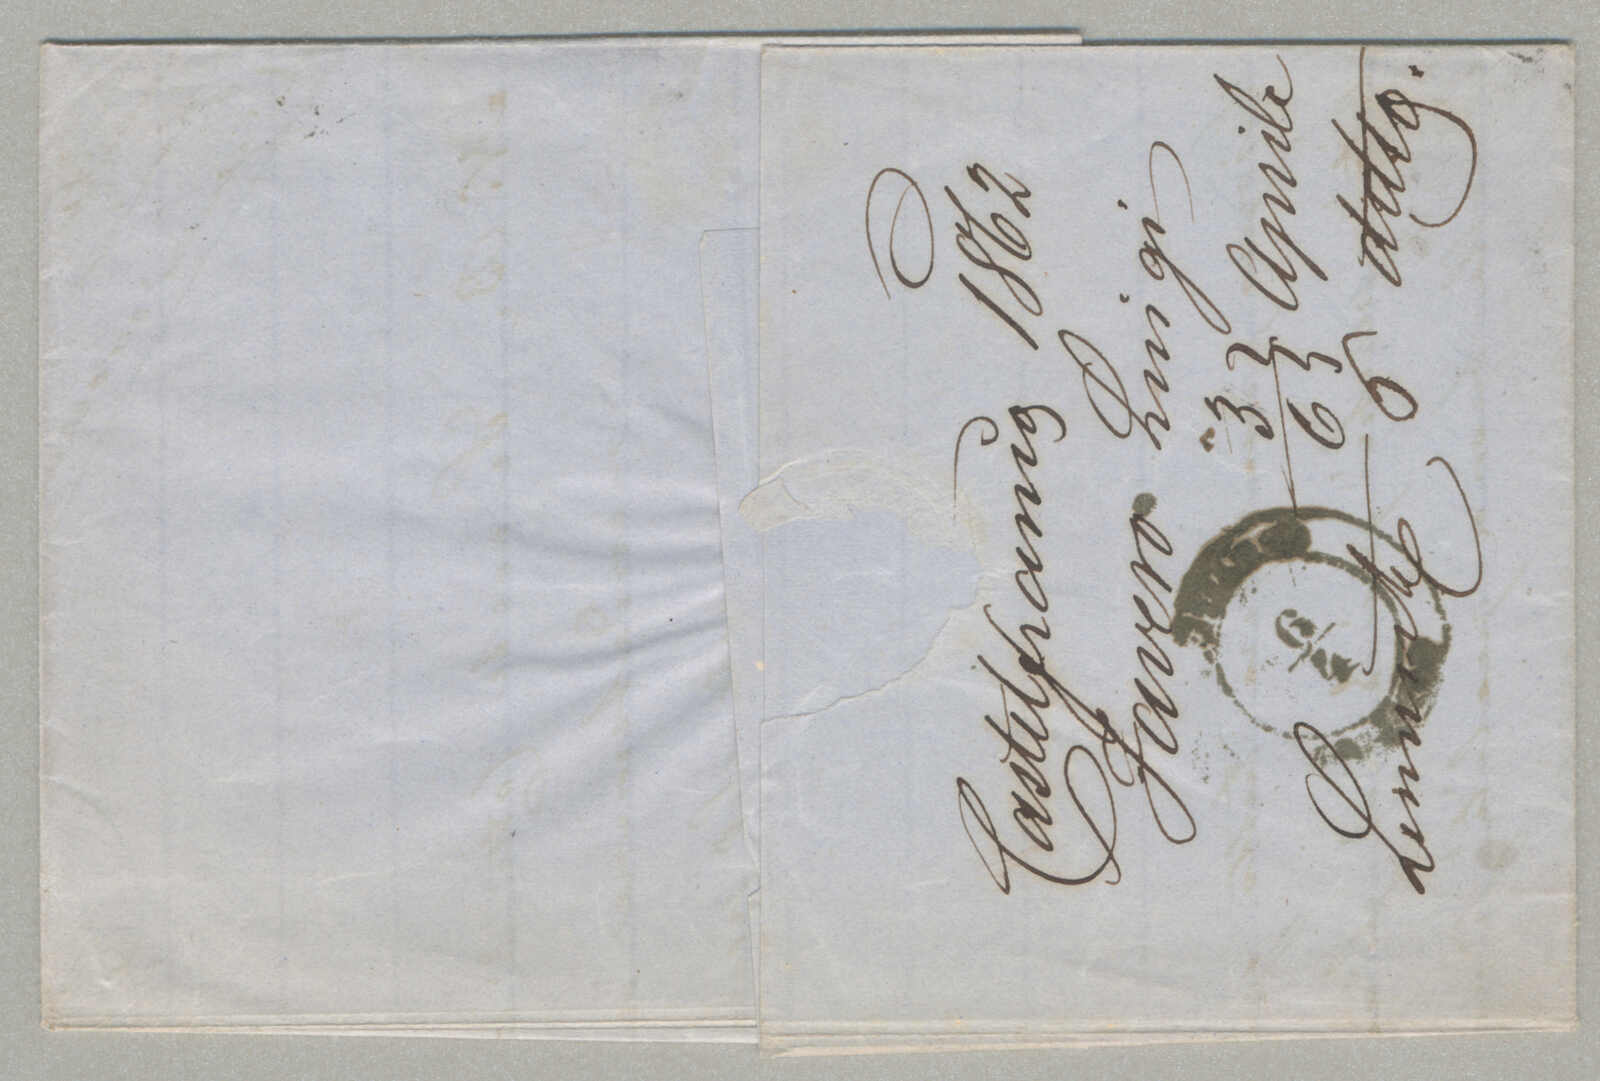 Castelfranco 1862
Favero Luigi
3 2 Aprile
6 3
5 detto.
6/4